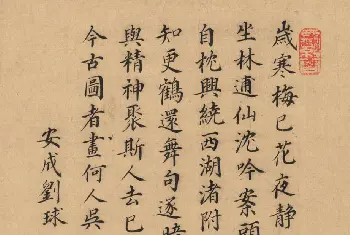 歲寒梅已花夜靜
坐林逋仙沈吟案頭
自枕興繞西湖渚附
知更鶴還舞句逐暗
與精神聚斯人去已
今古圖者畫何人吳
安成劉球